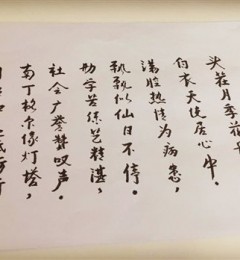 头茬月季花开
白衣天使居心中。
满腔热情为病患，
飘飘似仙日不停。
勤学苦练艺精湛，
社会广誉赞叹声。
南丁格尔像灯塔，